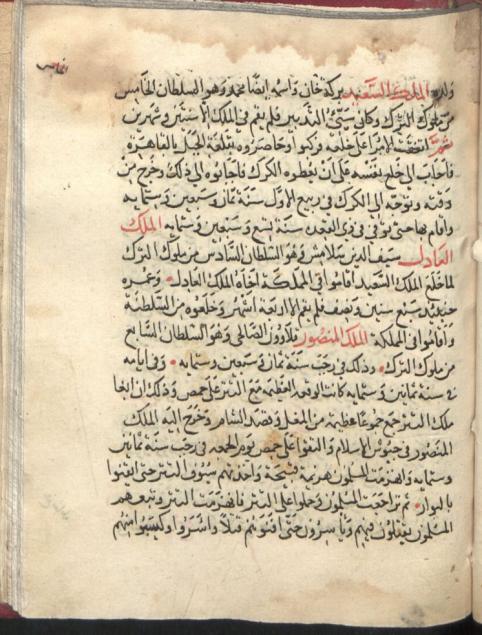 الخامس
ولده الملك السعيد بركة خان واسمه ايضا محمد وهو السلطان الخامس
من ملوك الترك وكان سيّئ التدبير فلم يقم في الملك الا سنتين وشهرين
ثم اتفقت الامرا على خلعه فركبوا وحاصروه بقلعة الجبل بالقاهرة
فاجاب الى خلع نفسه على ان يعطوه الكرك فاجابوه الى ذلك وخرج من
وقته وتوجه الى الكرك في ربيع الاول سنة ثمان وسبعين وستمايه
واقام بها حتى توفي في ذي القعدة سنة تسع وسبعين وستمايه الملك
العادل سيف الدين سلامش وهو السلطان السادس من ملوك الترك
لما خلع الملك السعيد اقاموا في المملكة اخاه الملك العادل وعمره
حينئذ سبع سنين ونصف فلم يقم الا اربعة اشهر وخلعوه من السلطنة
واقاموا في المملكة الملك المنصور قلاوون الصالحي وهو السلطان السابع
من ملوك الترك وذلك في رجب سنة ثمان وسبعين وستمايه وفي ايامه
في سنة ثمانين وستمايه كانت الوقعه العظيمه مع التتر على حمص وذلك ان ابغا
ملك التتر جمع جموعا عظيمة من المغل وقصد الشام وخرج اليه الملك
المنصور في جيوش الاسلام والتقوا على حمص يوم الجمعه في رجب سنة ثمانين
وستمايه وانهزمت المسلمون هزيمة قبيحة واخذتهم سيوف التتر حتى ايقنوا
بالبوار ثم تراجعت المسلمون وحملوا على التتر فانهزمت التتر وتبعهم
المسلمون يقتلون فيهم وياسرون حتى افنوهم قتلا واسروا وكسبوا منهم